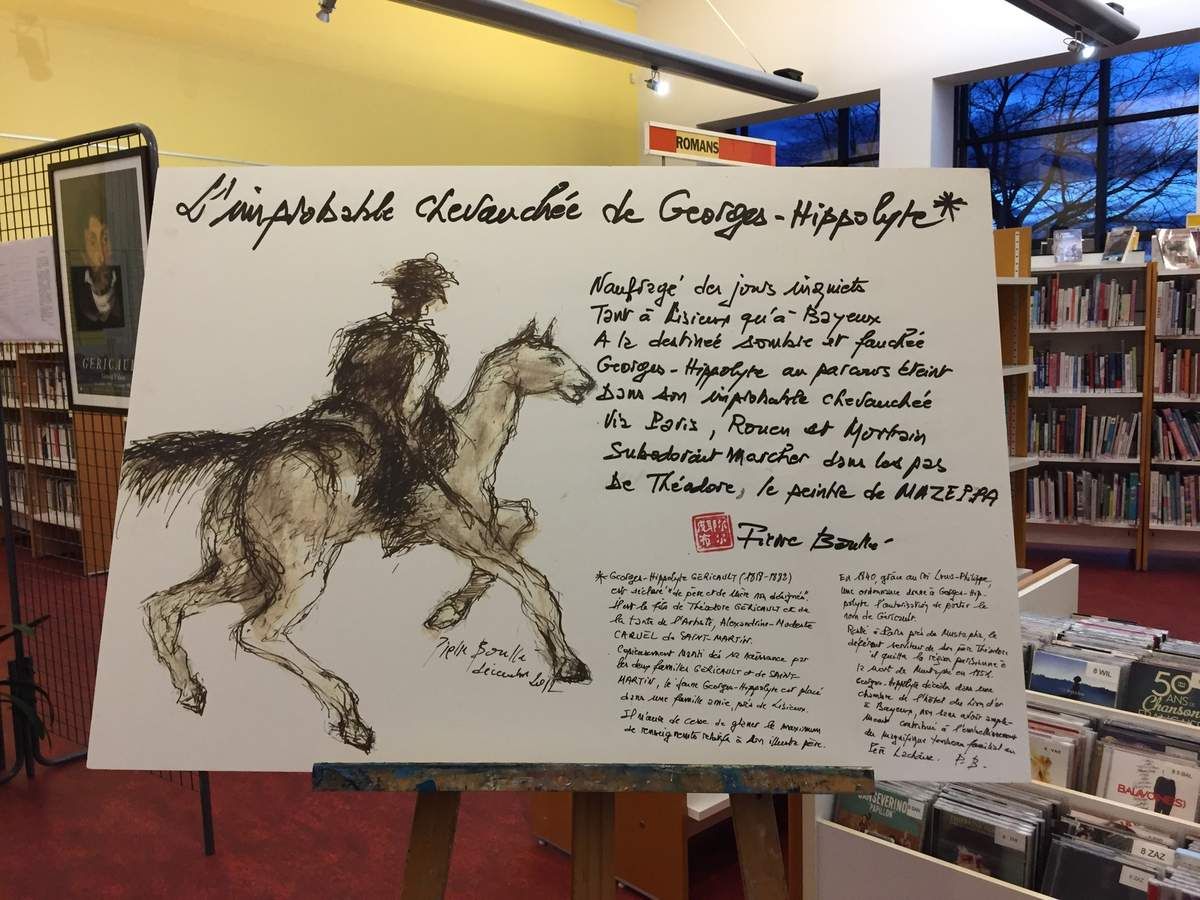 ROMANS
L'improbable chevauchée de Georges-Hippolyte*
Naufragé des jours inquiets
Tant à Lisieux qu'à Bayeux
A la destinée sombre et fauchée
Georges-Hippolyte au parcours éteint
Dans son improbable chevauchée
Via Paris, Rouen et Mortain
Subodorant Marcher dans les pas
De Théodore, le peintre de MAZEPPA
Pierre Boullé
Pierre Boullé
décembre 2012
* Georges-Hippolyte GERICAULT (1818-1882)
est déclaré "de père et de Mère non désignés"
Il est le fils de Théodore GÉRICAULT et de
la tante de l'Artiste, Alexandrine-Modeste
CARUEL de SAINT-MARTIN.
Copieusement Menti dès sa Naissance par
les deux familles GERICAULT et de SAINT-
MARTIN, le jeune Georges-Hippolyte est placé
dans une famille amie, près de Lisieux.
Il n'aura de cesse de glaner le maximum
de renseignements relatifs à son illustre père.
En 1840, grâce au roi Louis-Philippe,
une ordonnance donne à Georges-Hip-
polyte l'autorisation de porter le
nom de Géricault.
Resté à Paris près de Mustapha, le
déférent serviteur de son père Théodore
il quitta la région parisienne à
la mort de Mustapha en
Georges-Hippolyte décèda dans une
chambre de l'hôtel du Lion d'or
à Bayeux, non sans avoir ample-
ment contribué à l'embellissement
du magnifique tombeau familial au
Père Lachaise. P. B.
GERICAU
8 WIL
50
ANS
Chanson
8 BAL
BALAVOINE(S)
SANSEVERINO
PAPILLON
8 ZAZ